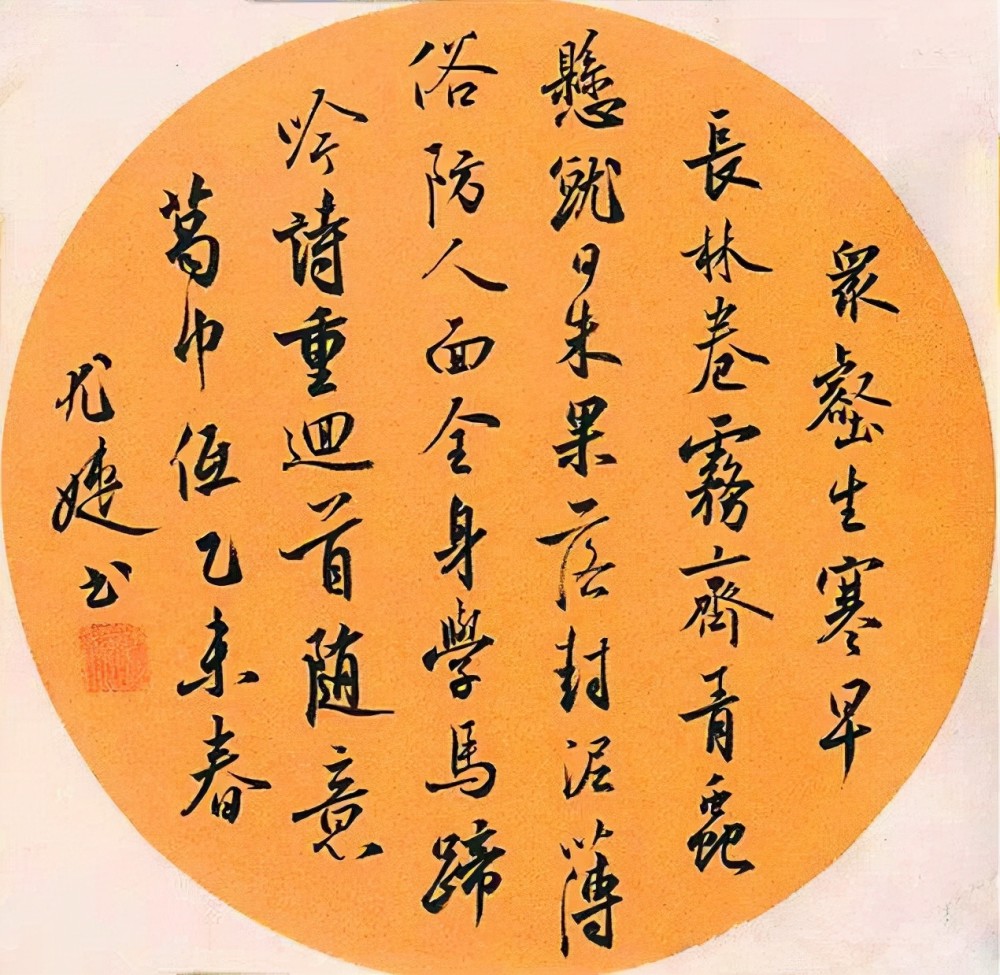 眾壑生寒早
長林卷霧齊青蟲
懸就日朱果落封泥薄
俗防人面全身學馬蹄
吟詩重迴首随意
葛巾低乙未春
尤婕书